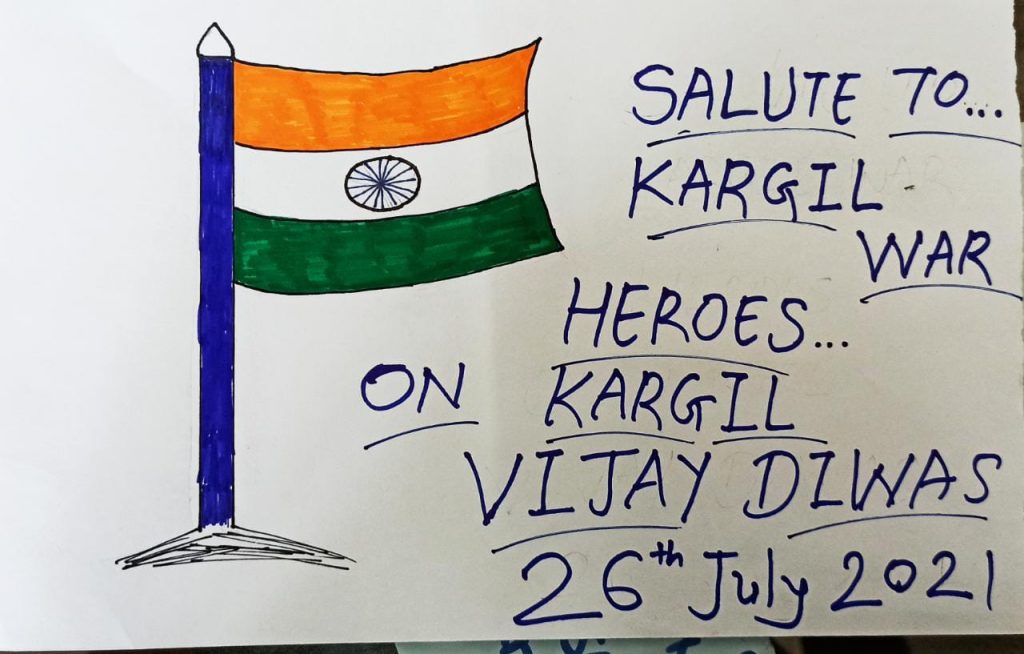 SALUTE TO...
KARGIL
WAR
HEROES...
ON KARGIL
VIJAY DIWAS
26th July 2021